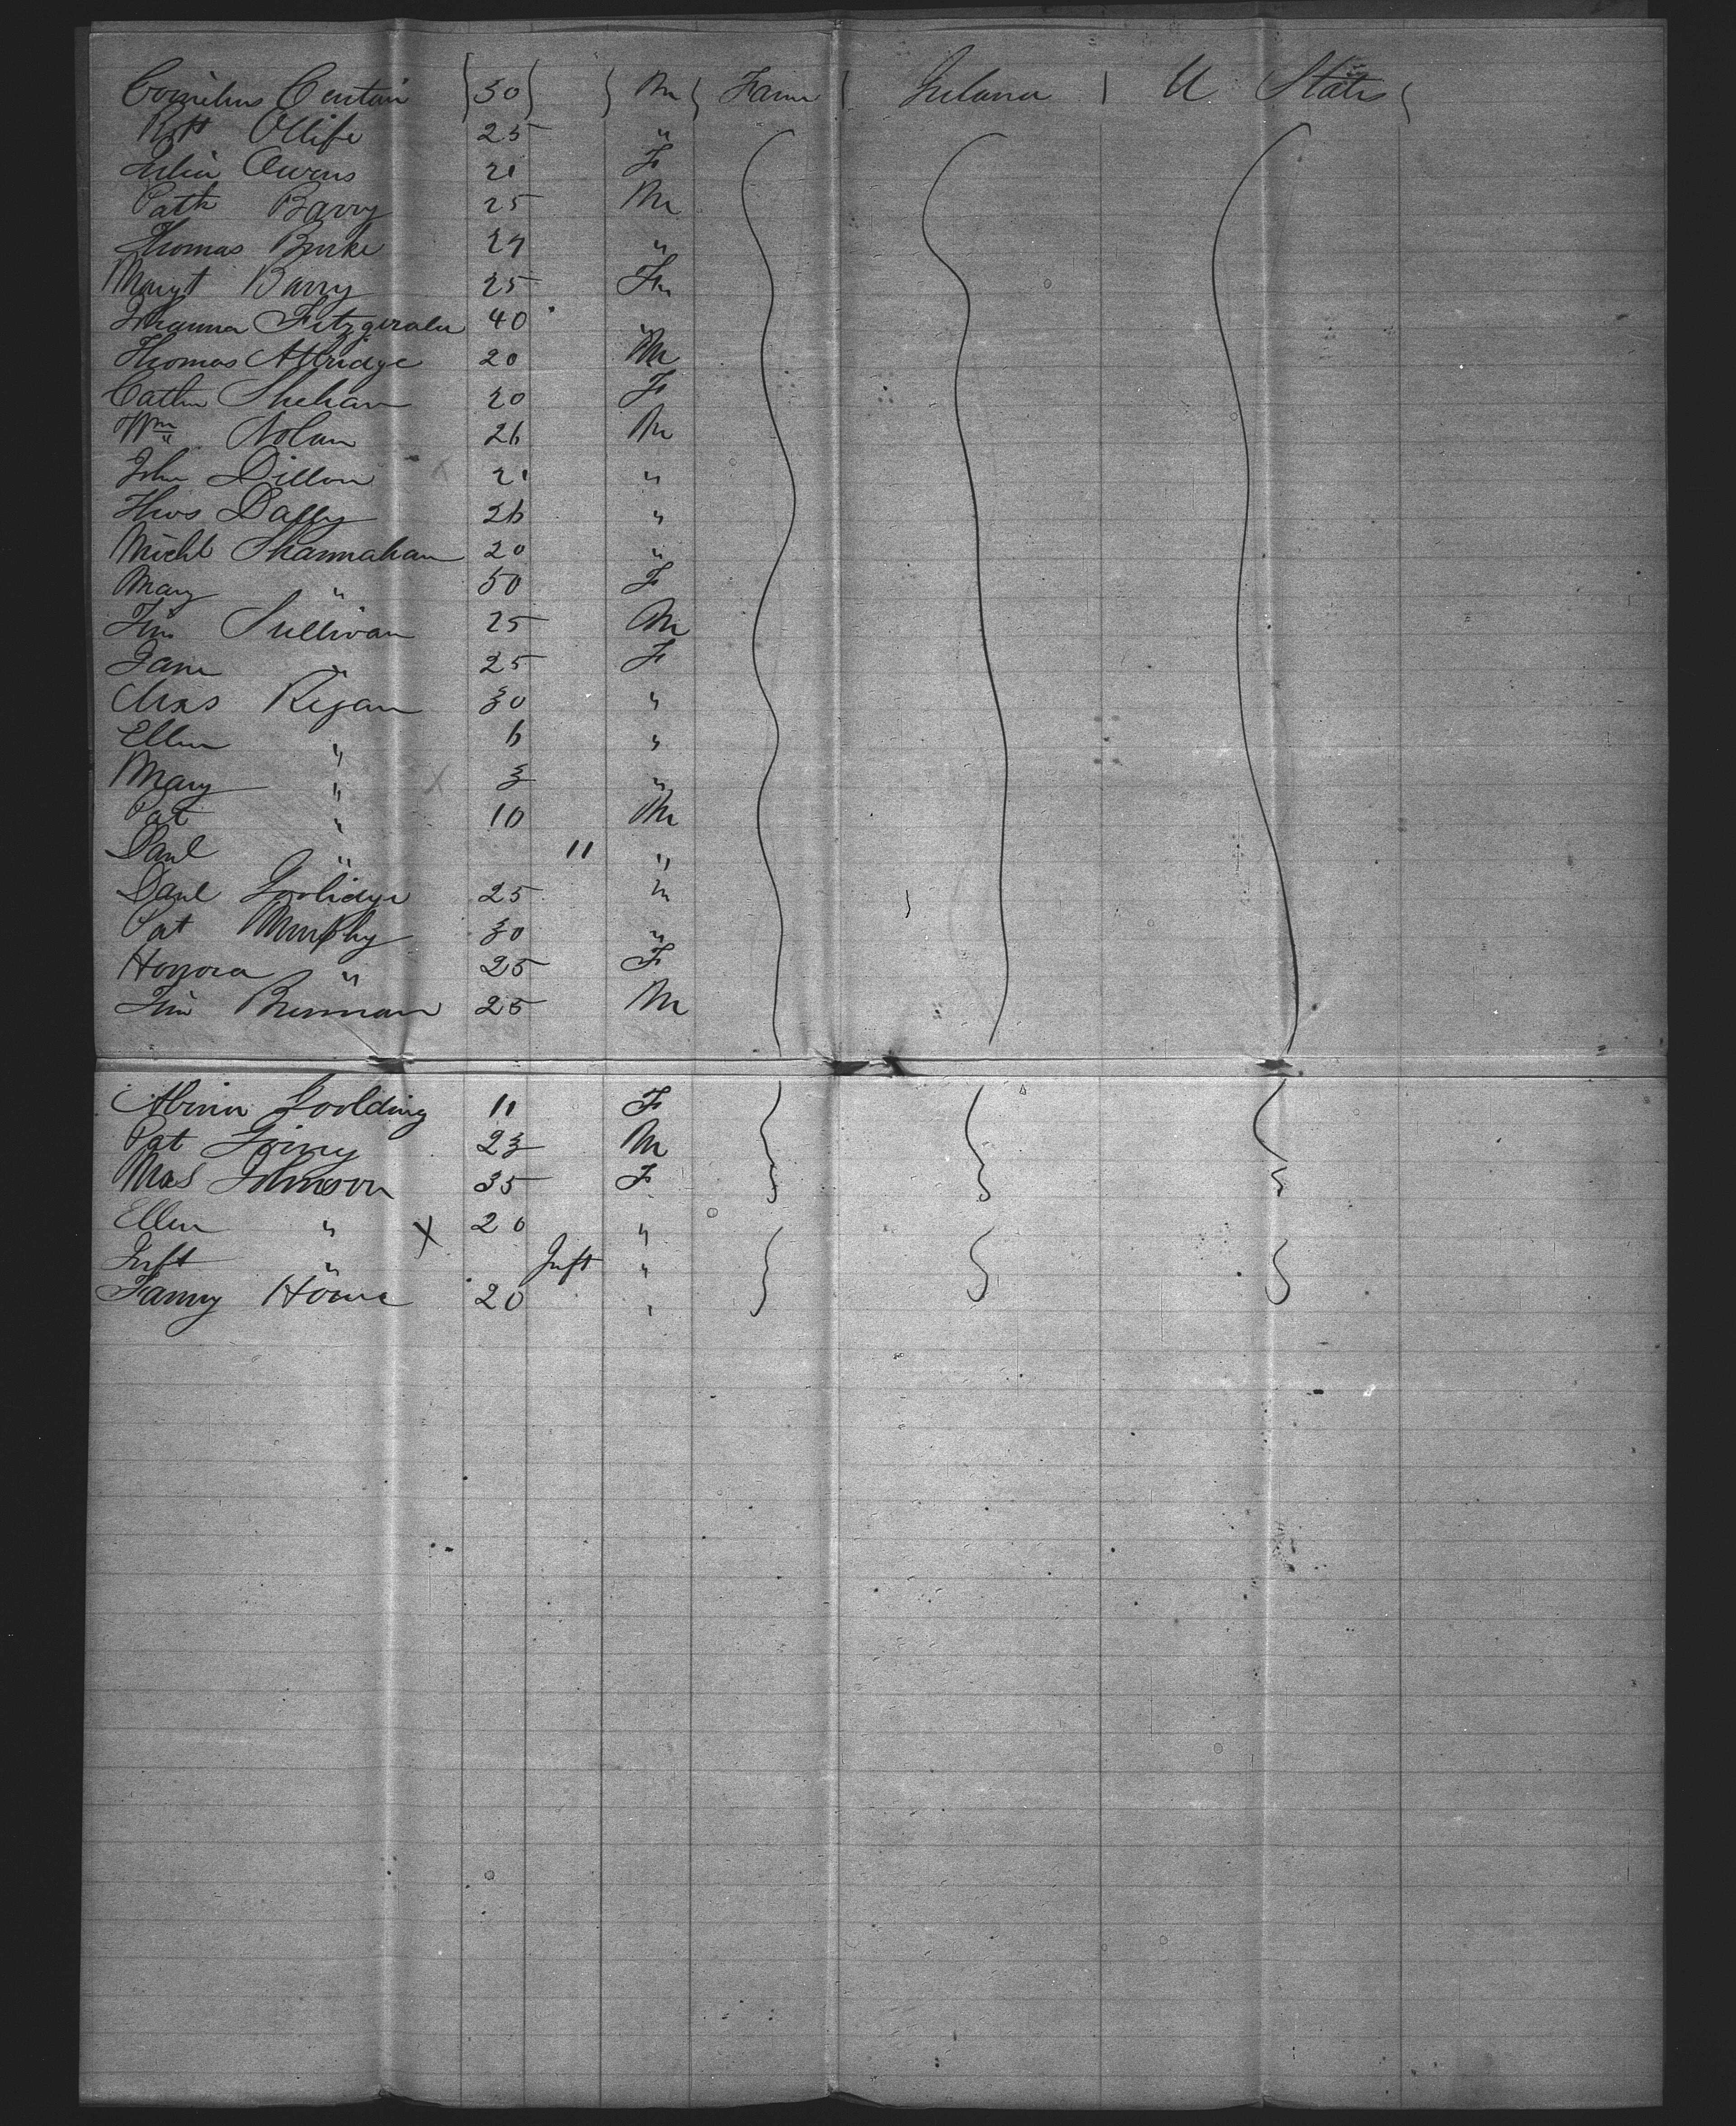 Cornelius 30 M Farmer Ireland U States
Robt Olliffe 25 "
Julia Owens 21 F
Patk Barry 25 M
Thomas Burke 27 "
Margt Barry 25 Fm
Johanna Fitzgerald 40 "
Thomas Attridge 20 M
Cathn Shehan 20 F
Wm Nolan 26 M
John Dillon 21 "
Thos Daffy 26 "
Michl Shannahan 20 "
Mary " 50 F
Tim Sullivan 25 M
Jane " 25 F
Mrs Regan 30 "
Ellen " 6 "
Mary " 3 "
Pat " 10 M
Danl " 11 "
Danl 25 m
Pat Murphy 30 "
Honora " 25 F
Tim Brennan 25 M
Goolding 11 F
Pat 23 M
Mrs Johnson 35 F
Ellen " X 20 "
Inft " Inft "
Fanny Howe 20 "